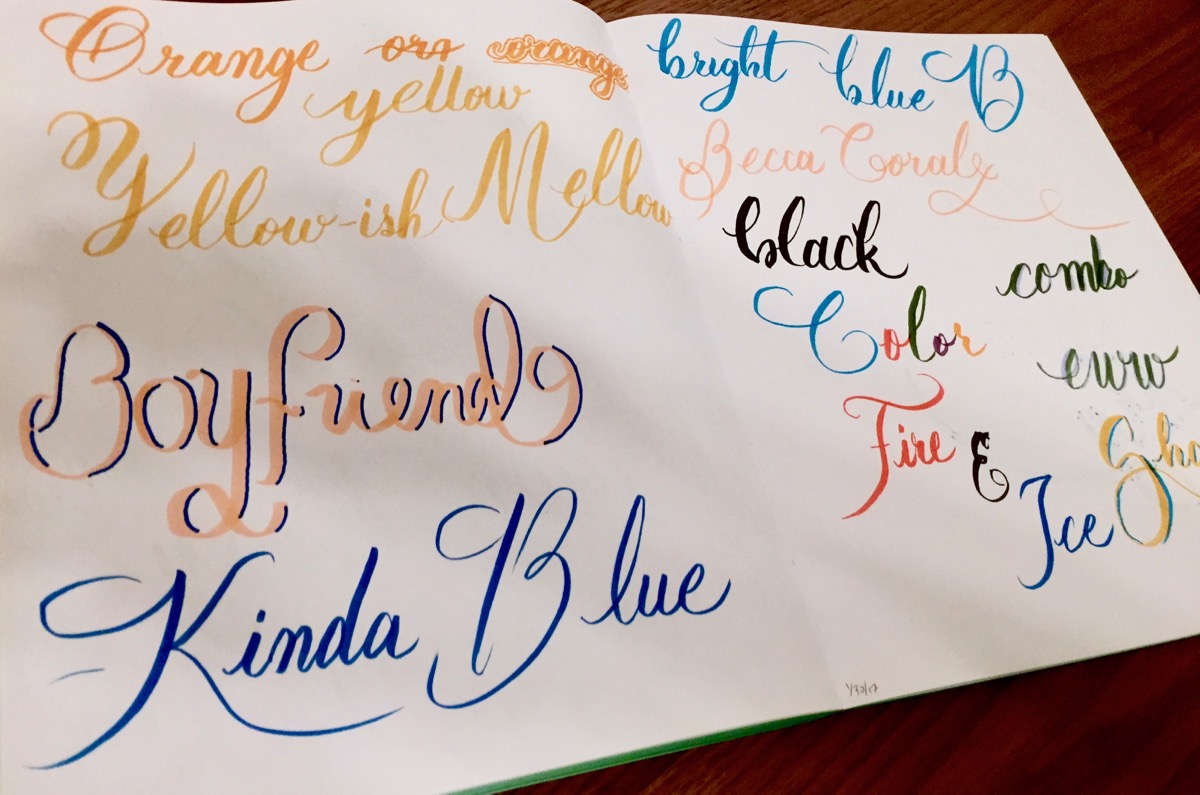 Orange ora orange
yellow
Y Yellow-ish Mellow
Boyfriend
Kinda Blue
bright blue B
Becca Coral
black
combo
Color
eww
Fire & Ice
1/30/17